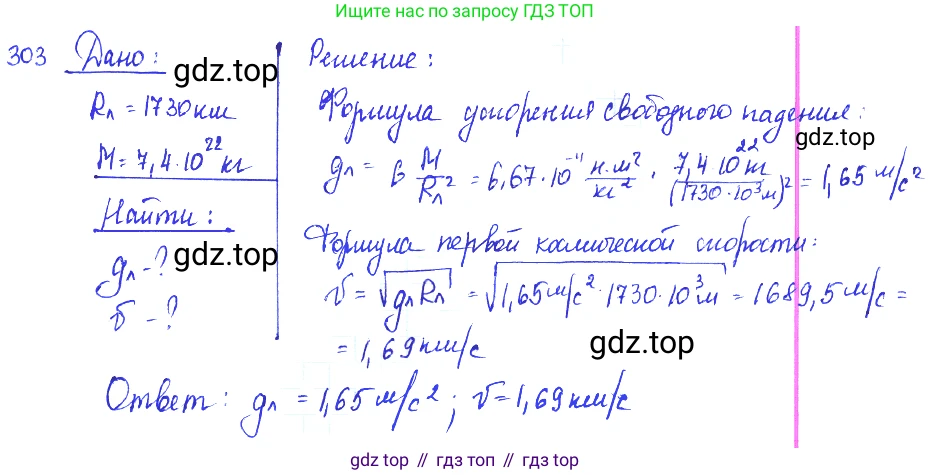 Ищите нас по запросу ГДЗ ТОП
303 Дано:
gdz.top
Rл = 1730 км
M = 7,4 · 10²² кг
Найти:
gл - ?
gdz.top
v - ?
Решение:
Формула ускорения свободного падения:
gdz.top
gл = G M/Rл² = 6,67 · 10⁻¹¹ н·м²/кг² · 7,4 · 10²² кг/(1730 · 10³ м)² = 1,65 м/с²
Формула первой космической скорости:
v = √gл Rл = √1,65 м/с² · 1730 · 10³ м = 1689,5 м/с =
= 1,69 км/с
gdz.top
Ответ: gл = 1,65 м/с²; v = 1,69 км/с
gdz.top // гдз топ // гдз.топ